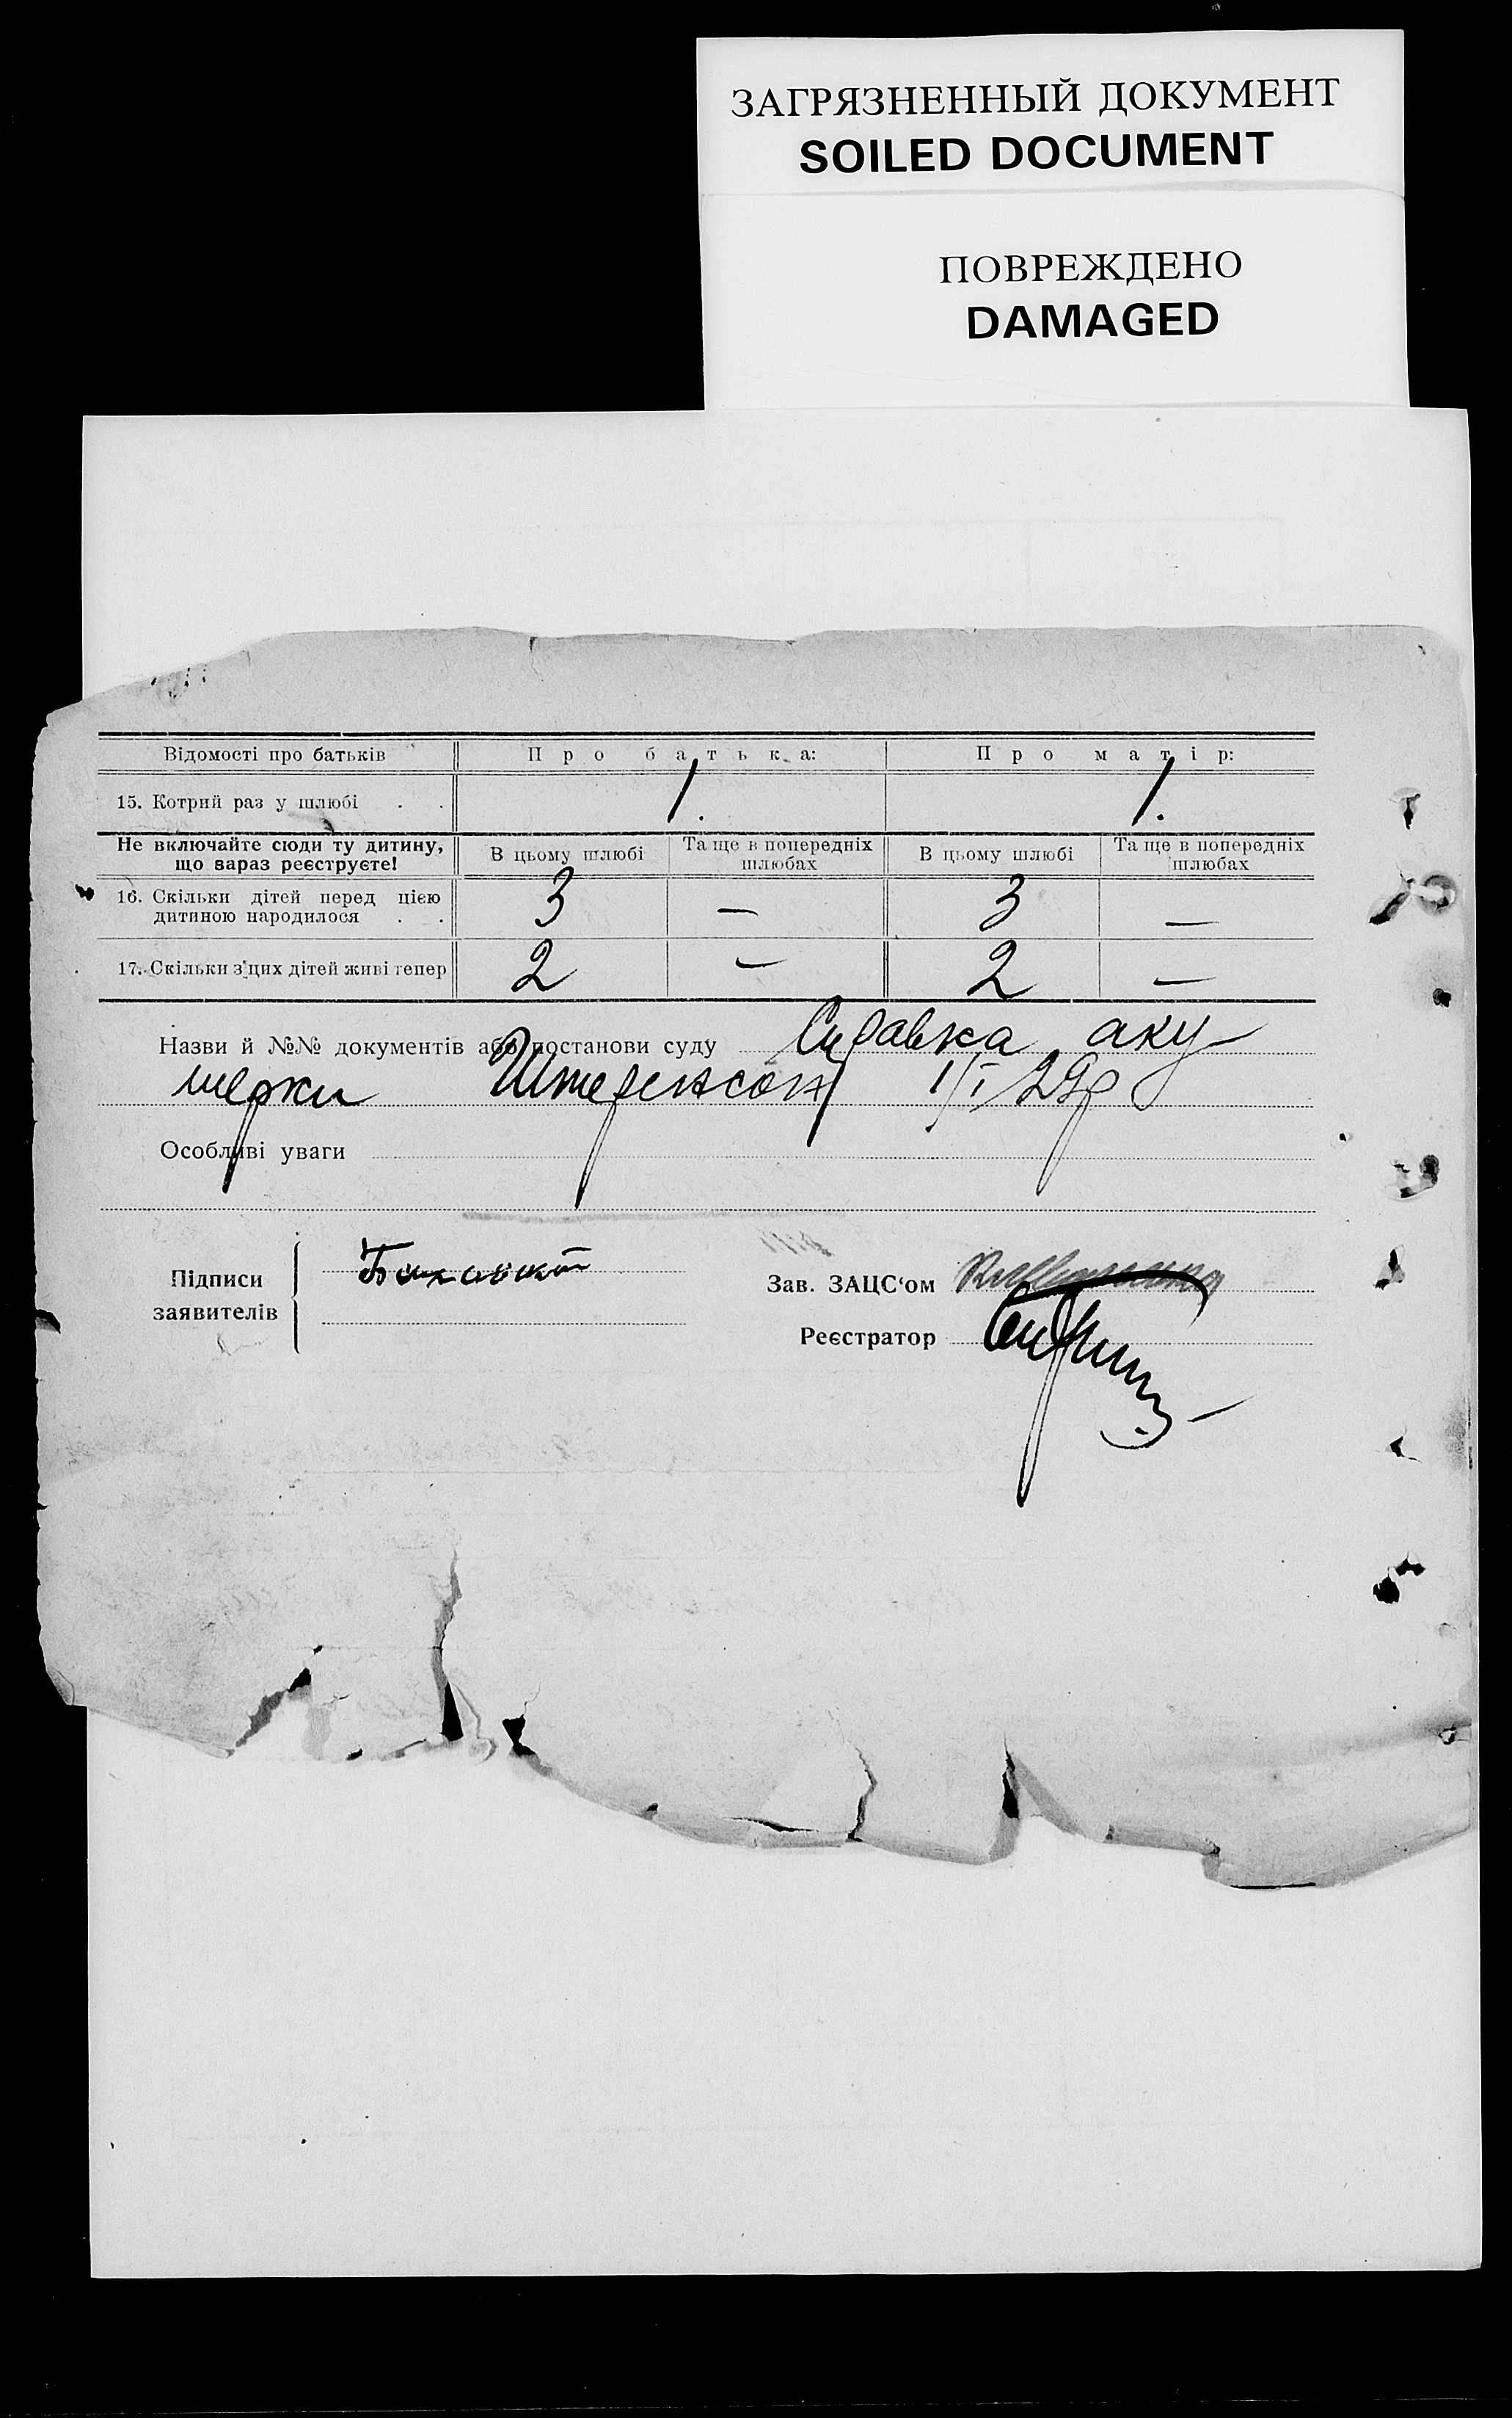 ЗАГРЯЗНЕННЫЙ ДОКУМЕНТ
SOILED DOCUMENT
ПОВРЕЖДЕНО
DAMAGED
Відомості про батьків Про батька: Про матір:
15. Котрий раз у шлюбі . . 1. 1.
Не включайте сюди ту дитину, що вараз реєструєте! В цьому шлюбі Та ще в попередніх шлюбах В цьому шлюбі Та ще в попередніх шлюбах
16. Скільки дітей перед цією
дитиною народилося . . 3 — 3 —
17. Скільки з цих дітей живі тепер 2 — 2 —
Назви й №№ документів або постанови суду Справка аку-
шерки Штеренсон 1/I 29р
Особливі уваги
Підписи
заявителів
Зав. ЗАЦС‘ом
Реєстратор